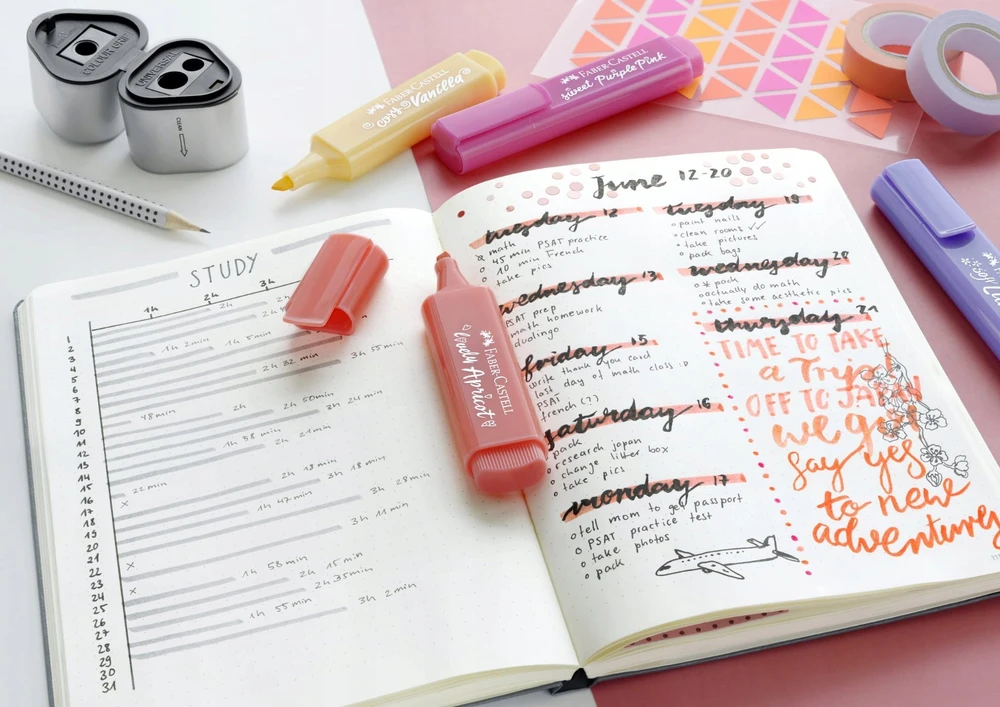 COLOUR GRIP
UNIVERSAL
CLEAN
FABER-CASTELL
cosy Vanilla
FABER-CASTELL
sweet Purple Pink
FABER-CASTELL
lovely Apricot
STUDY
1h 2h 3h
1
2
3
4
5
6
7
8
9
10
11
12
13
14
15
16
17
18
19
20
21
22
23
24
25
26
27
28
29
30
31
2h
1h 2min
1h 5min
2h 32 min
3h 55min
48min
2h
2h 50min
3h 24 min
1h 58 min
2h 21min
2h 13min
3h 18min
x 22min
1h 47min
3h 28min
3h 11min
x
1h 58min
2h 15 min
x
2h 35min
1h 55 min
3h 2min
June 12-20
tuesday 12
math
45 min PSAT practice
10 min French
take pics
wednesday 13
PSAT prep
math homework
duolingo
friday 15
write thank you card
last day of math class :D
PSAT
french (??)
saturday 16
pack
research japan
change litter box
take pics
monday 17
tell mom to get passport
PSAT practice test
take photos
pack
tuesday 19
paint nails
clean rooms ✓
take pictures
pack bags
wednesday 20
* pack
actually do math
take some aesthetic pics
thursday 21
TIME TO TAKE
a Trip!
OFF TO JAPAN
we go!
say yes
to new
adventures